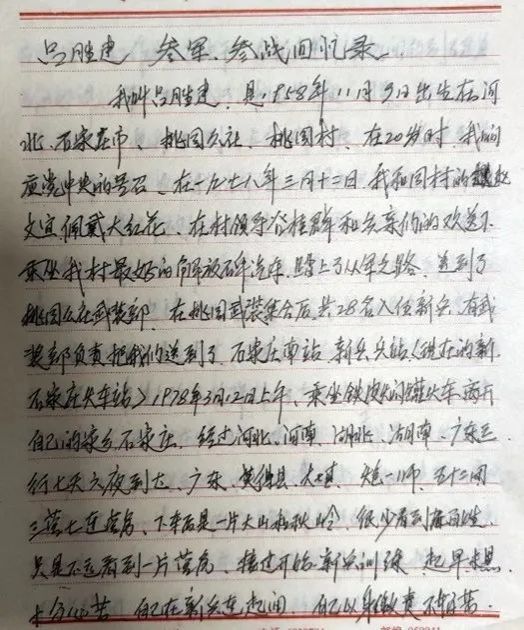 吕胜建 参军、参战回忆录.
我叫吕胜建,是1958年11月9日出生在河
北、石家庄市、桃园公社、桃园村、在20岁时、我们
应党中央的号召、在一九七八年三月十二日、我和同村的赵
文宜、佩戴大红花、在村领导谷桂群和父亲们的欢送下
乘坐我村最好的解放牌汽车、踏上了从军之路、送到了
桃园公社武装部、在桃园武装集合后、共28名入伍新兵、有武
装部负责把我们送到了、石家庄南站、新兵兵站(现在的新
石家庄火车站)1978年3月12日上午、乘坐铁皮闷罐火车、离开
自己的家乡石家庄、经过河北、河南、湖北、湖南、广东三
行七天六夜到达、广东、县、师、五十二团
三营七连营房、下车后是一片大山和秋岭、很少看到老百姓、
只是不远看到一片营房、接过开始新兵训练、起早
自己在新兵连起间、自己以身